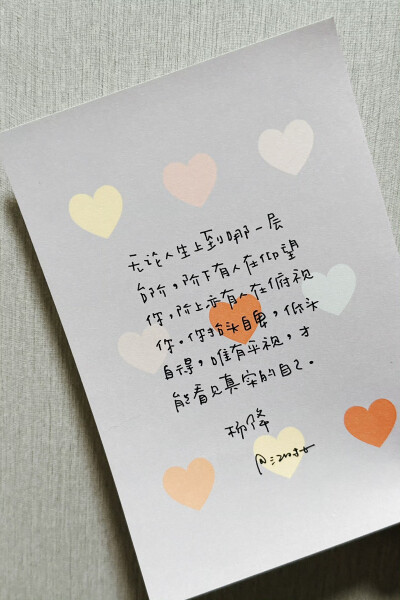 无论人生上到哪一层
台阶，阶下有人在仰望
你，阶上亦有人在俯视
你。你抬头自卑，低头
自得，唯有平视，才
能看见真实的自己。
杨绛